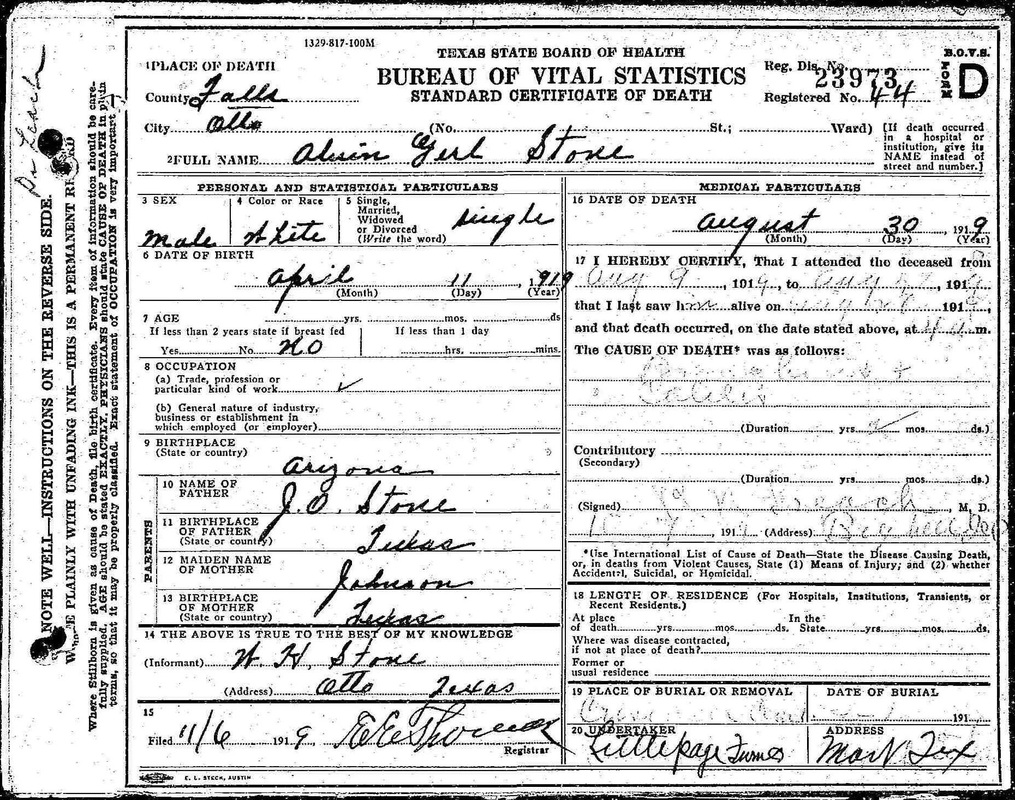 1329-817-100M
TEXAS STATE BOARD OF HEALTH
BUREAU OF VITAL STATISTICS
STANDARD CERTIFICATE OF DEATH
B.O.V.S.
FORM D
Reg. Dis. No. 23973
Registered No. 44
1 PLACE OF DEATH
County Falls
City Otto (No. St.; Ward)
[If death occurred in a hospital or institution, give its NAME instead of street and number.]
2 FULL NAME Alvin Gerl Stone
PERSONAL AND STATISTICAL PARTICULARS
3 SEX
Male
4 Color or Race
White
5 Single, Married, Widowed or Divorced (Write the word)
single
6 DATE OF BIRTH
April 11, 1919
(Month) (Day) (Year)
7 AGE yrs. mos. ds
If less than 2 years state if breast fed
Yes No. NO
If less than 1 day
hrs. mins.
8 OCCUPATION
(a) Trade, profession or
particular kind of work ✓
(b) General nature of industry,
business or establishment in
which employed (or employer)
9 BIRTHPLACE
(State or country)
Arizona
PARENTS
10 NAME OF
FATHER
J. O. Stone
11 BIRTHPLACE
OF FATHER
(State or country)
Texas
12 MAIDEN NAME
OF MOTHER
Johnson
13 BIRTHPLACE
OF MOTHER
(State or country)
Texas
14 THE ABOVE IS TRUE TO THE BEST OF MY KNOWLEDGE
(Informant) W. H. Stone
(Address) Otto Texas
15
Filed 11/6 1919
Registrar
E. L. STECK, AUSTIN
MEDICAL PARTICULARS
16 DATE OF DEATH
August 30, 1919
(Month) (Day) (Year)
17 I HEREBY CERTIFY, That I attended the deceased from
Aug 9, 1919, to Aug 191
that I last saw him alive on 191
and that death occurred, on the date stated above, at m.
The CAUSE OF DEATH* was as follows:
(Duration yrs. mos. ds.)
Contributory
(Secondary)
(Duration yrs. mos. ds.)
(Signed) M. D.
191 (Address)
*Use International List of Cause of Death—State the Disease Causing Death,
or, in deaths from Violent Causes, State (1) Means of Injury; and (2) whether
Accidental, Suicidal, or Homicidal.
18 LENGTH OF RESIDENCE (For Hospitals, Institutions, Transients, or
Recent Residents.)
At place of death yrs. mos. ds. In the State yrs. mos. ds.
Where was disease contracted,
if not at place of death?
Former or
usual residence
19 PLACE OF BURIAL OR REMOVAL
DATE OF BURIAL
191
20 UNDERTAKER
Littlepage
ADDRESS
Mart Tex
Dr Leach
NOTE WELL—INSTRUCTIONS ON THE REVERSE SIDE.
PLAINLY WITH UNFADING INK—THIS IS A PERMANENT
Where Stillborn is given as cause of Death, file birth certificate. Every item of information should be care-
fully supplied. AGE should be stated EXACTLY. PHYSICIANS should state CAUSE OF DEATH in plain
terms, so that it may be properly classified. Exact statement of OCCUPATION is very important